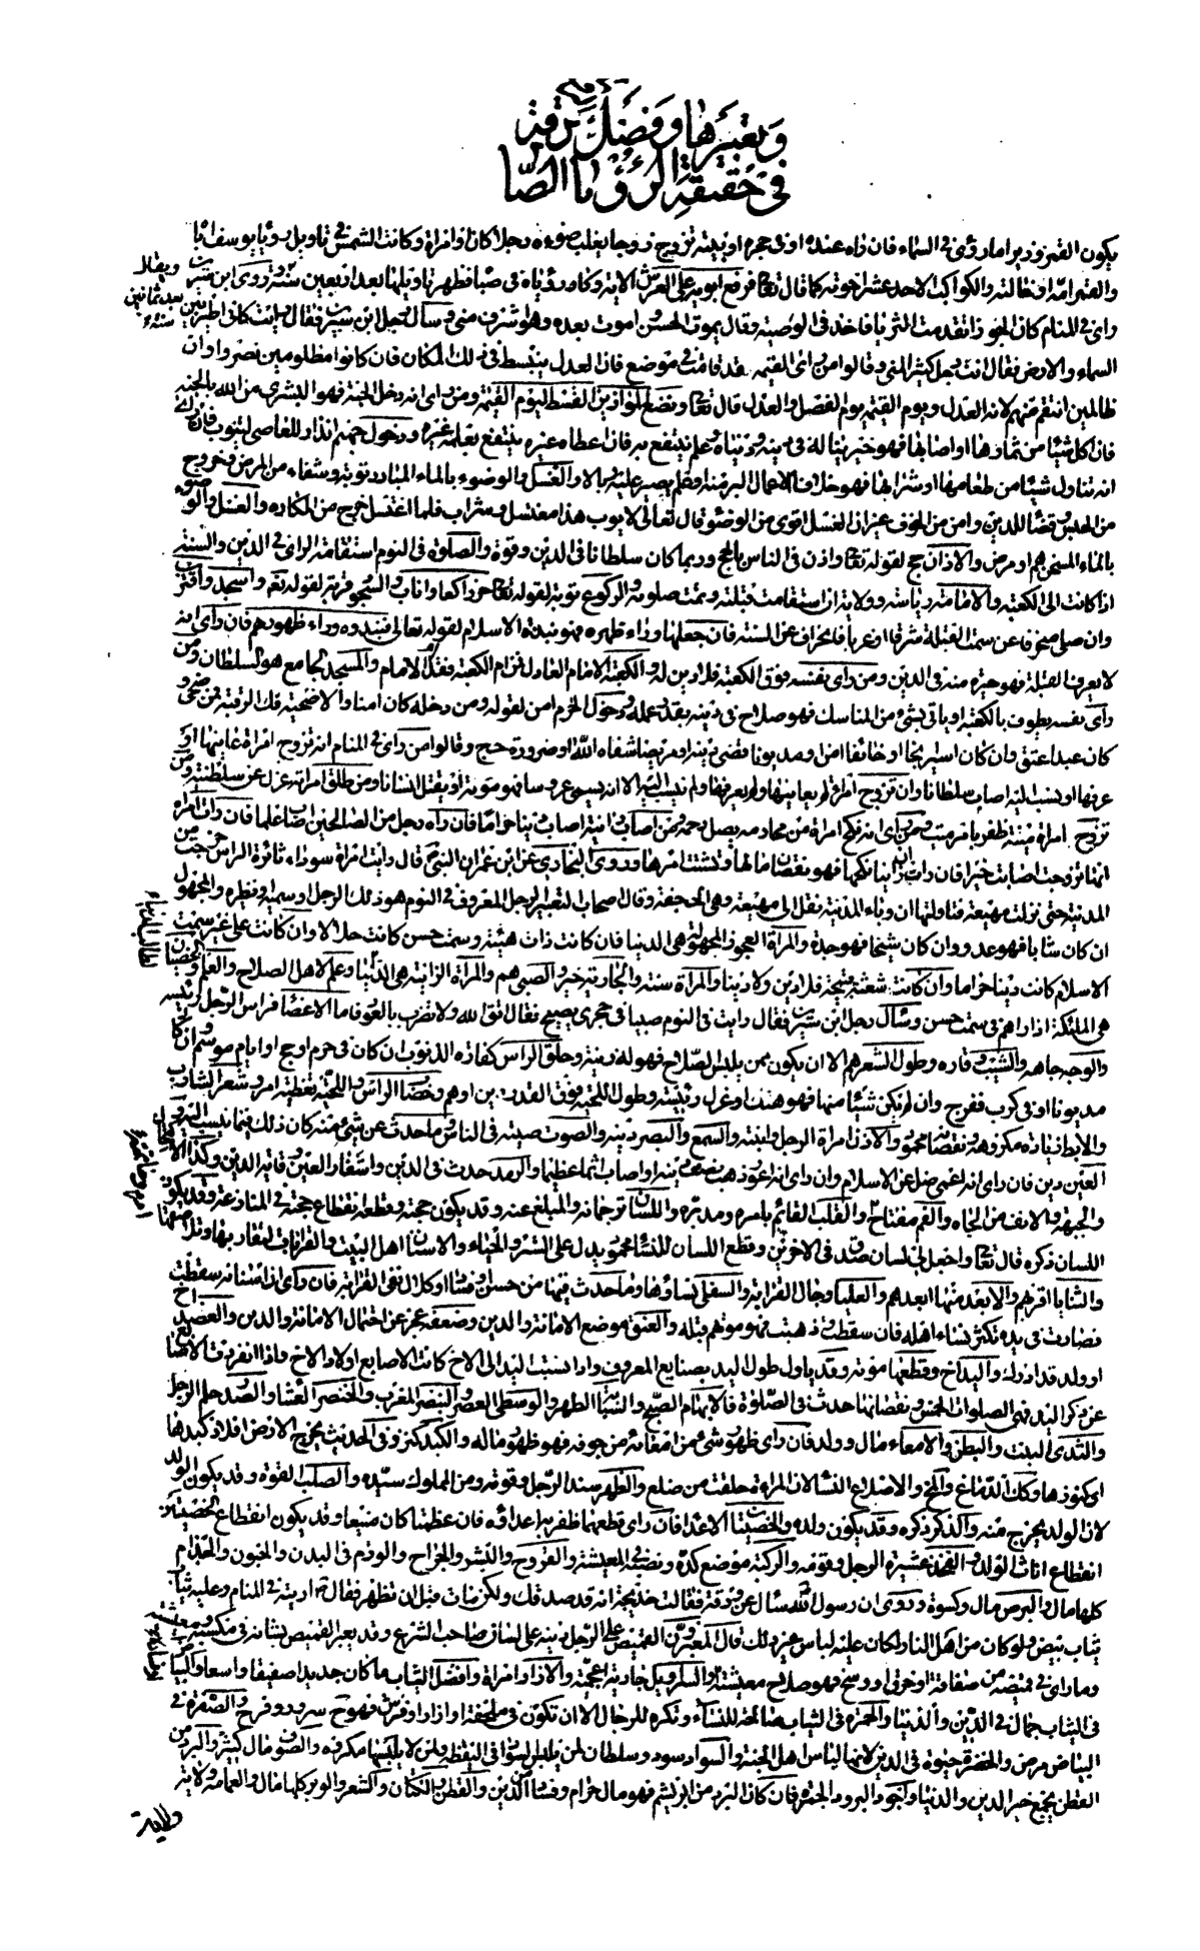 وتعبيرها وفضل
في حقيقة الرؤيا الصا
يكون القمر وزيرا ما رؤى في السماء فان راه عنده او في حجره او بيته تزوج زوجا يغلب ضوءه رجلا كان او امراة وكانت الشمس في تاويل رؤيا يوسف ابا
والقمر امه او خالته والكواكب الاحد عشر اخوته كما قال تعا فرفع ابويه على العرش الاية وكان رؤياه في صبا فظهر تاويلها بعد اربعين سنة وروى ابن سيرين
ويقال بعد ثمانين سنة
راى في المنام كان الجوزا تقدمت الثريا فاخذ في الوصية وقال يموت الحسن واموت بعده وهو اشرف مني وسأل رجل ابن سيرين فقال رايت كاني اطير بين
السماء والارض فقال انت رجل كثير المنى وقالوا من راى القيمة قد قامت في موضع فان العدل يبسط في ذلك المكان فان كانوا مظلومين نصروا وان
ظالمين انتقم منهم لانه العدل ويوم القيمة يوم الفصل والعدل قال تعا ونضع الموازين القسط ليوم القيمة ومن راى انه دخل الجنة فهو البشرى من الله بالجنة
فان اكل شيئا من ثمارها او اصابها فهو خير يناله في دينه ودنياه وعلم ينتفع به فان اعطاه غيره ينتفع بعلمه غيره ودخول جهنم انذار للعاصى ليتوب فان راى
انه تناول شيئا من طعامها او شرابها فهو خلاف الاعمال البر منه او علم يصير عليه وبالا والغسل والوضوء بالماء البارد توبة وشفاء من المرض وخروج
من الحبس وقضا للدين وامن من الخوف غير ان الغسل اقوى من الوضوء قال تعالى لايوب هذا مغتسل بارد وشراب فلما اغتسل خرج من المكاره والغسل والوضوء
بالماء المسخن هم او مرض والاذان حج لقوله تعا واذن في الناس بالحج وربما كان سلطانا في الدين وقوة والصلوة في النوم استقامة الراى في الدين والسنة
اذا كانت الى الكعبة والامامة رياسة وولاية ان استقامت قبلته وتمت صلوته والركوع توبة لقوله تعا خر راكعا واناب والسجود قربة لقوله تعم واسجد واقترب
وان صلى منحرفا عن سمت القبلة شرقا او غربا فانحراف عن السنة فان جعلها وراء ظهره فهو نبذه الاسلام لقوله تعالى فنبذوه وراء ظهورهم فان راى انه
لا يعرف القبلة فهو حيرة منه في الدين ومن راى نفسه فوق الكعبة فلا دين له والكعبة الامام العادل فمن ام الكعبة فقد ام الامام والمسجد الجامع هو السلطان ومن
راى نفسه يطوف بالكعبة او ياتى بشئ من المناسك فهو صلاح في دينه بقدر عمله ودخول الحرم امن لقوله ومن دخله كان امنا والاضحية فك الرقبة فمن ضحى و
كان عبدا عتق وان كان اسيرا نجا او خائفا امن او مديونا قضى دينه او مريضا شفاه الله او ضرورة حج وقالوا من راى في المنام انه تزوج امراة عاينها او
عرفها او نسبت اليه اصاب سلطانا وان تزوج امراة لم يعاينها ولم يعرفها ولم تنسب اليه الا انه يسمى عروسا فهو موته او يقتل انسانا ومن طلق امراته عزل عن سلطنته ومن
تزوج امراة ميتة ظفر بامر ميت ومن راى انه نكح امراة من محارمه يصل رحمه ومن اصاب زانية اصاب دنيا حراما فان راه رجل من الصالحين اصاب علما فان رات امراة
المدينة حتى نزلت مهيعة فتاولتها ان وباء المدينة نقل الى مهيعة وهى الجحفة وقال اصحاب التعبير الرجل المعروف في النوم هو ذلك الرجل او سميه او نظيره والمجهول
ان كان شابا فهو عدو وان كان شيخا فهو جده والمراة العجوز المجهولة هى الدنيا فان كانت ذات هيئة وسمت حسن كانت حلالا وان كانت على غير سمت
الاسلام كانت دنيا حراما وان كانت شعثة قبيحة فلا دين ولا دنيا والمراة سنة والجارية خير والصبى هم والمراة الزانية هى الدنيا وعلم لاهل الصلاح والعلم و
هى الملئكة اذا راهم في سمت حسن وسأل رجل ابن سيرين فقال رايت في النوم صبيا في حجرى يصيح فقال اتق الله ولا تضرب بالعود فاما الاعضا فراس الرجل رئيسه
والوجه جاهه والشيب وقاره وطول الشعر هم الا ان يكون ممن يلبس السلاح فهو له زينة وحلق الراس كفارة الذنوب ان كان في حرم او حج او ايام موسم ان كان
مديونا او في كرب ففرج وان لم يكن شيئا منها فهو هتك او عزل رئيسه وطول اللحية فوق القدر دين او هم وخضاب الراس واللحية تغطية امر وشعر الشارب
والابط زيادته مكروهة ونقصانها محمود والاذن امراة الرجل وابنته والسمع والبصر دينه والصوت صيته في الناس وما حدث عن شئ منه كان ذلك فيما ينسب اليه
العين دين فان راى انه اعمى ضل عن الاسلام وان راى انه اعور ذهب نصف دينه او اصاب اثما عظيما والرمد حدث في الدين واشفار العين وقاية الدين وكذا الاهداب
والجبهة والانف من الجاه والفم مفتاح والقلب القائم بامره ومدبره واللسان ترجمانه والمبلغ عنه وقد يكون حجته وقطعه انقطاع حجته في المنازعة وقد يكون
اللسان ذكره قال تعا واجعل لى لسان صدق في الاخرين وقطع اللسان للنساء محمود يدل على الستر والحياء والاسنان اهل البيت والقرابات لتقاربها
والثنايا اقربهم والابعد منها ابعدهم والعليا رجال القرابة والسفلى نساؤها وما حدث فيها من حسن او فساد او كلال ففى القرابة فان راى ان اسنانه سقطت
فصارت في يده تكثر نساء اهله فان سقطت وذهبت فهو موتهم قبله والعنق موضع الامانة والدين وضعفه عجز عن احتمال الامانة والدين والعضد اخ
او ولد قد ادرك واليد اخ وقطعها موته وقد ياول طول اليد بصنايع المعروف واذا نسبت اليد الى الاخ كانت الاصابع اولاد الاخ واذا انفردت الاصابع
عن ذكر اليد فهى الصلوات الخمس ونقصانها حدث في الصلوة فالابهام الصبح والسبابة الظهر والوسطى العصر والبنصر المغرب والخنصر العشا والصدر حلم الرجل
والثدى البنت والبطن والامعاء مال وولد فان راى ظهور شئ من امعائه من جوفه فهو ظهور ماله والكبد كنز وفى الحديث يخرج الارض افلاذ كبدها
اى كنوزها وكذا الدماغ والمخ والاضلاع النسا لان المراة خلقت من ضلع والظهر سند الرجل وقوته ومن المملوك سيده والصلب القوة وقد يكون الولد
لان الولد يخرج منه والذكر ذكره وقد يكون ولده والخصيتان الاعدا فان راى قطعهما ظفر به اعداؤه فان عظمتا كان منيعا وقد يكون انقطاع الخصية
انقطاع اناث الولد والفخذ عشيرة الرجل وقومه والركبة موضع كده ونصبه في المعيشة والقروح والبثر والجراح والورم في البدن والجنون والجذام
كلها مال والبرص مال وكسوة وروى ان رسول الله سئل عن ورقة فقالت خديجة انه قد صدقك ولكن مات قبل ان تظهر فقال اريته في المنام وعليه ثياب
ثياب بيض ولو كان من اهل النار لكان عليه لباس غير ذلك قال المعبرون القميص على الرجل دينه على لسان صاحب الشرع وقد يعبر القميص بشانه في مكسبه ومعيشته
وما راى في قميصه من صفاقة او خرق او وسخ فهو صلاح معيشته والسراويل جارية اعجمية والازار امراة وافضل الثياب ما كان جديدا صفيقا واسعا والبياض
في الثياب جمال في الدين والدنيا والحمرة في الثياب صالحة للنساء وتكره للرجال الا ان تكون في ملحفة او ازار او فرش فهو ح سرور وفرح والصفرة في
الثياب مرض والخضرة حيوة في الدين لانها لباس اهل الجنة والسواد سودد وسلطان لمن يلبس السواد في اليقظة ولمن لا يلبسها مكروه والصوف مال كثير والبرد من
القطن يجمع خير الدين والدنيا واجود البرود الحبرة فان كان البرد من ابريشم فهو مال حرام وفساد الدين والقطن والكتان والشعر والوبر كلها مال والعمامة ولاية
ولاية